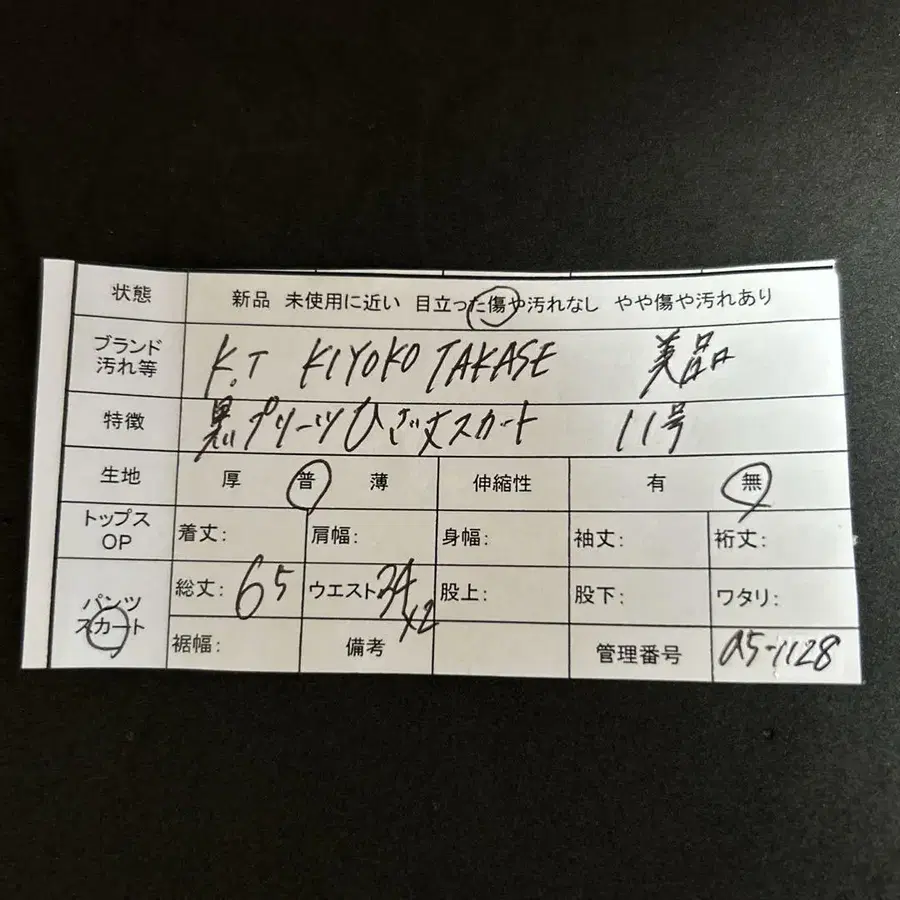 状態 新品 未使用に近い 目立った傷や汚れなし やや傷や汚れあり
ブランド 汚れ等 K.T KIYOKO TAKASE 美品
特徴 黒プリーツひざ丈スカート 11号
生地 厚 普 薄 伸縮性 有 無
トップス OP 着丈: 肩幅: 身幅: 袖丈: 裄丈:
パンツ スカート 総丈: 65 ウエスト 34×2 股上: 股下: ワタリ:
裾幅: 備考 管理番号 a5-1128